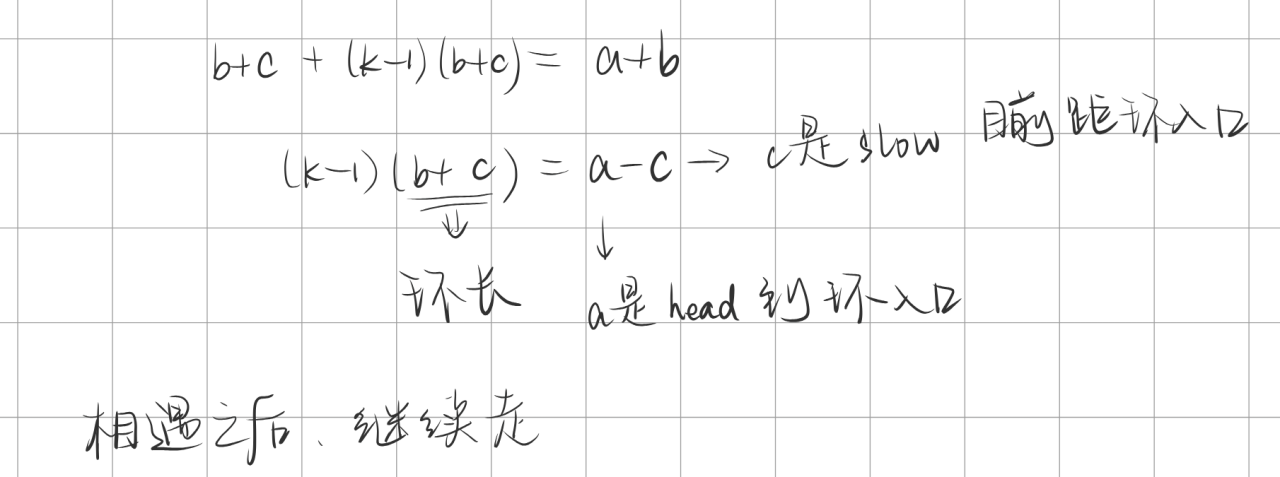 b+c + (k-1)(b+c) = a+b
(k-1)(b+c) = a-c → c是slow 目前距环入口
↓ ↓
环长 a是head到环入口
相遇之后、继续走